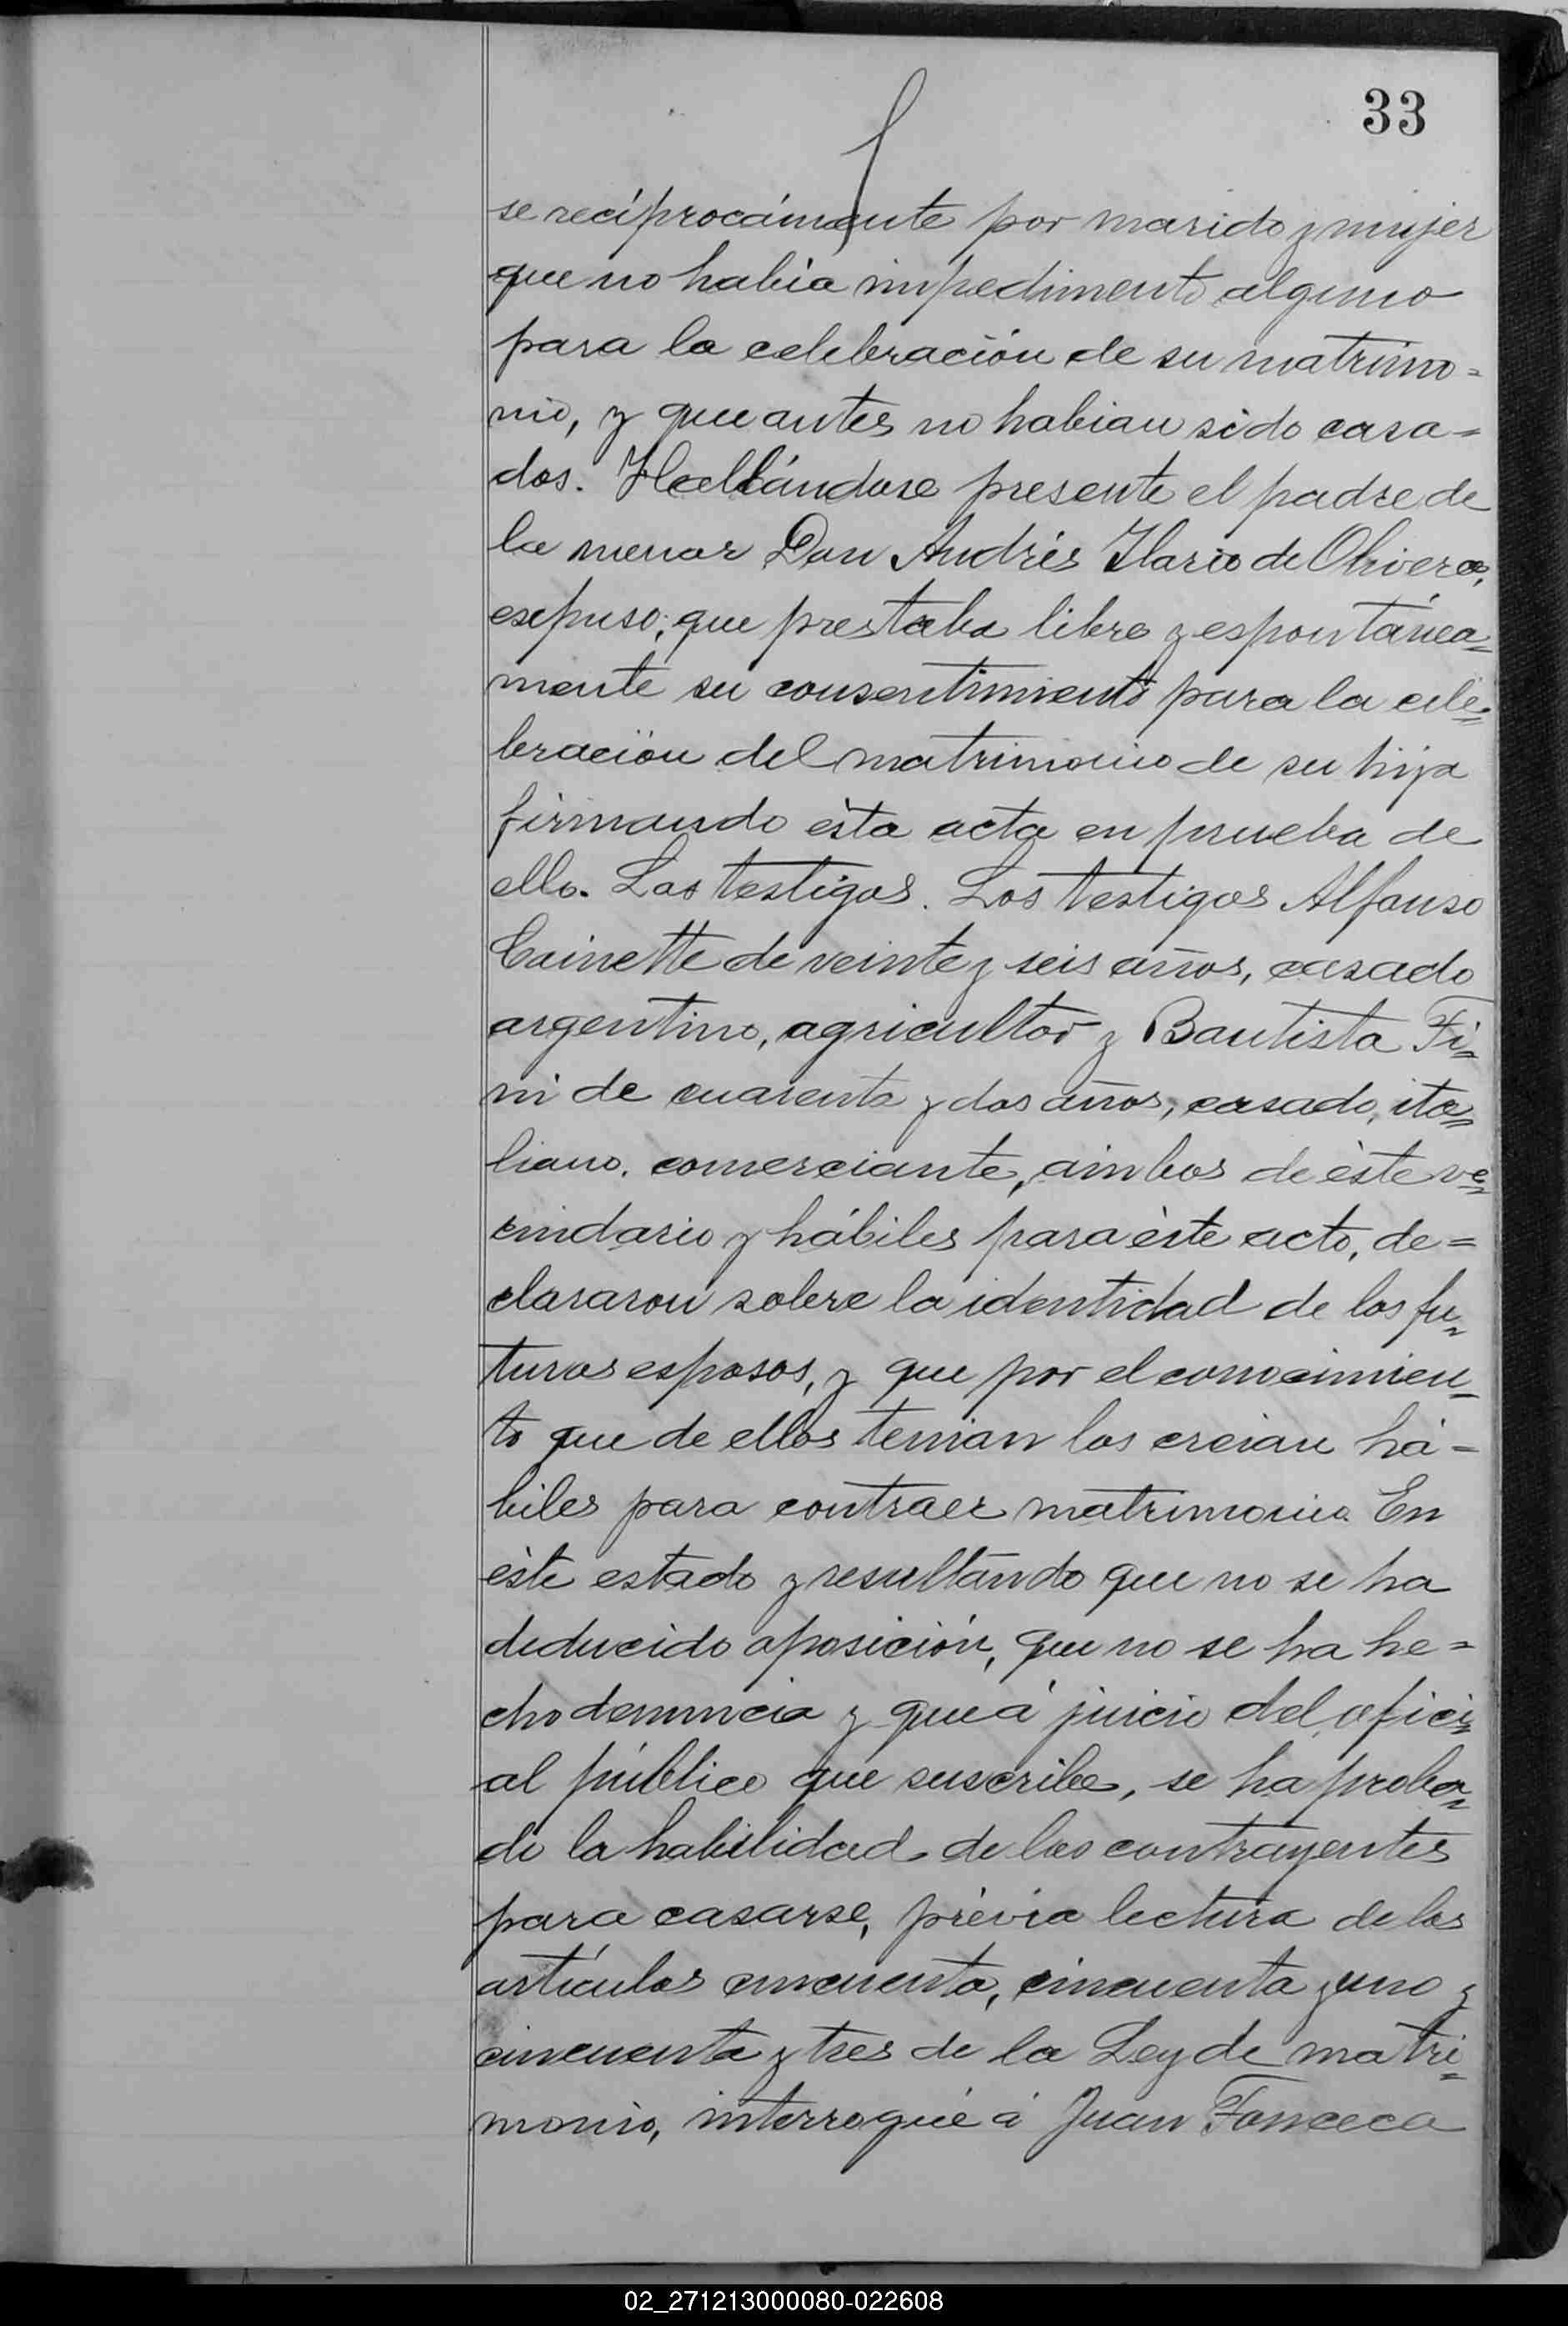 33
se recíprocámente por marido y mujer
que no habia impedimento alguno
para la celebración de su matrimo=
nio, y que antes no habian sido casa=
dos. Hallándose presente el padre de
la menor Don Andrés Ilario de Olivera,
esepuso; que prestaba libre y espontánea=
mente su consentimiento para la cele=
bración del matrimonio de su hija
firmando ésta acta en prueba de
ello. Los testigos. Los testigos Alfonso
de veinte y seis años, casado
argentino, agricultor y Bautista Fi=
ni de cuarenta y dos años, casado, ita=
liano, comerciante, ambos de éste ve=
cindario y hábiles para éste acto, de=
clararon sobre la identidad de los fu=
turos esposos, y que por el conocimien=
to que de ellos tenian los creian há=
biles para contraer matrimonio. En
éste estado y resultando que no se ha
deducido oposición, que no se ha he=
cho denuncia y que á juicio del ofici=
al público que suscribe, se ha proba=
do la habilidad de los contrayentes
para casarse, prévia lectura de los
artículos cincuenta, cincuenta y uno y
cincuenta y tres de la Ley de matri=
monio, interrogué á Juan Fonceca
02_271213000080-022608